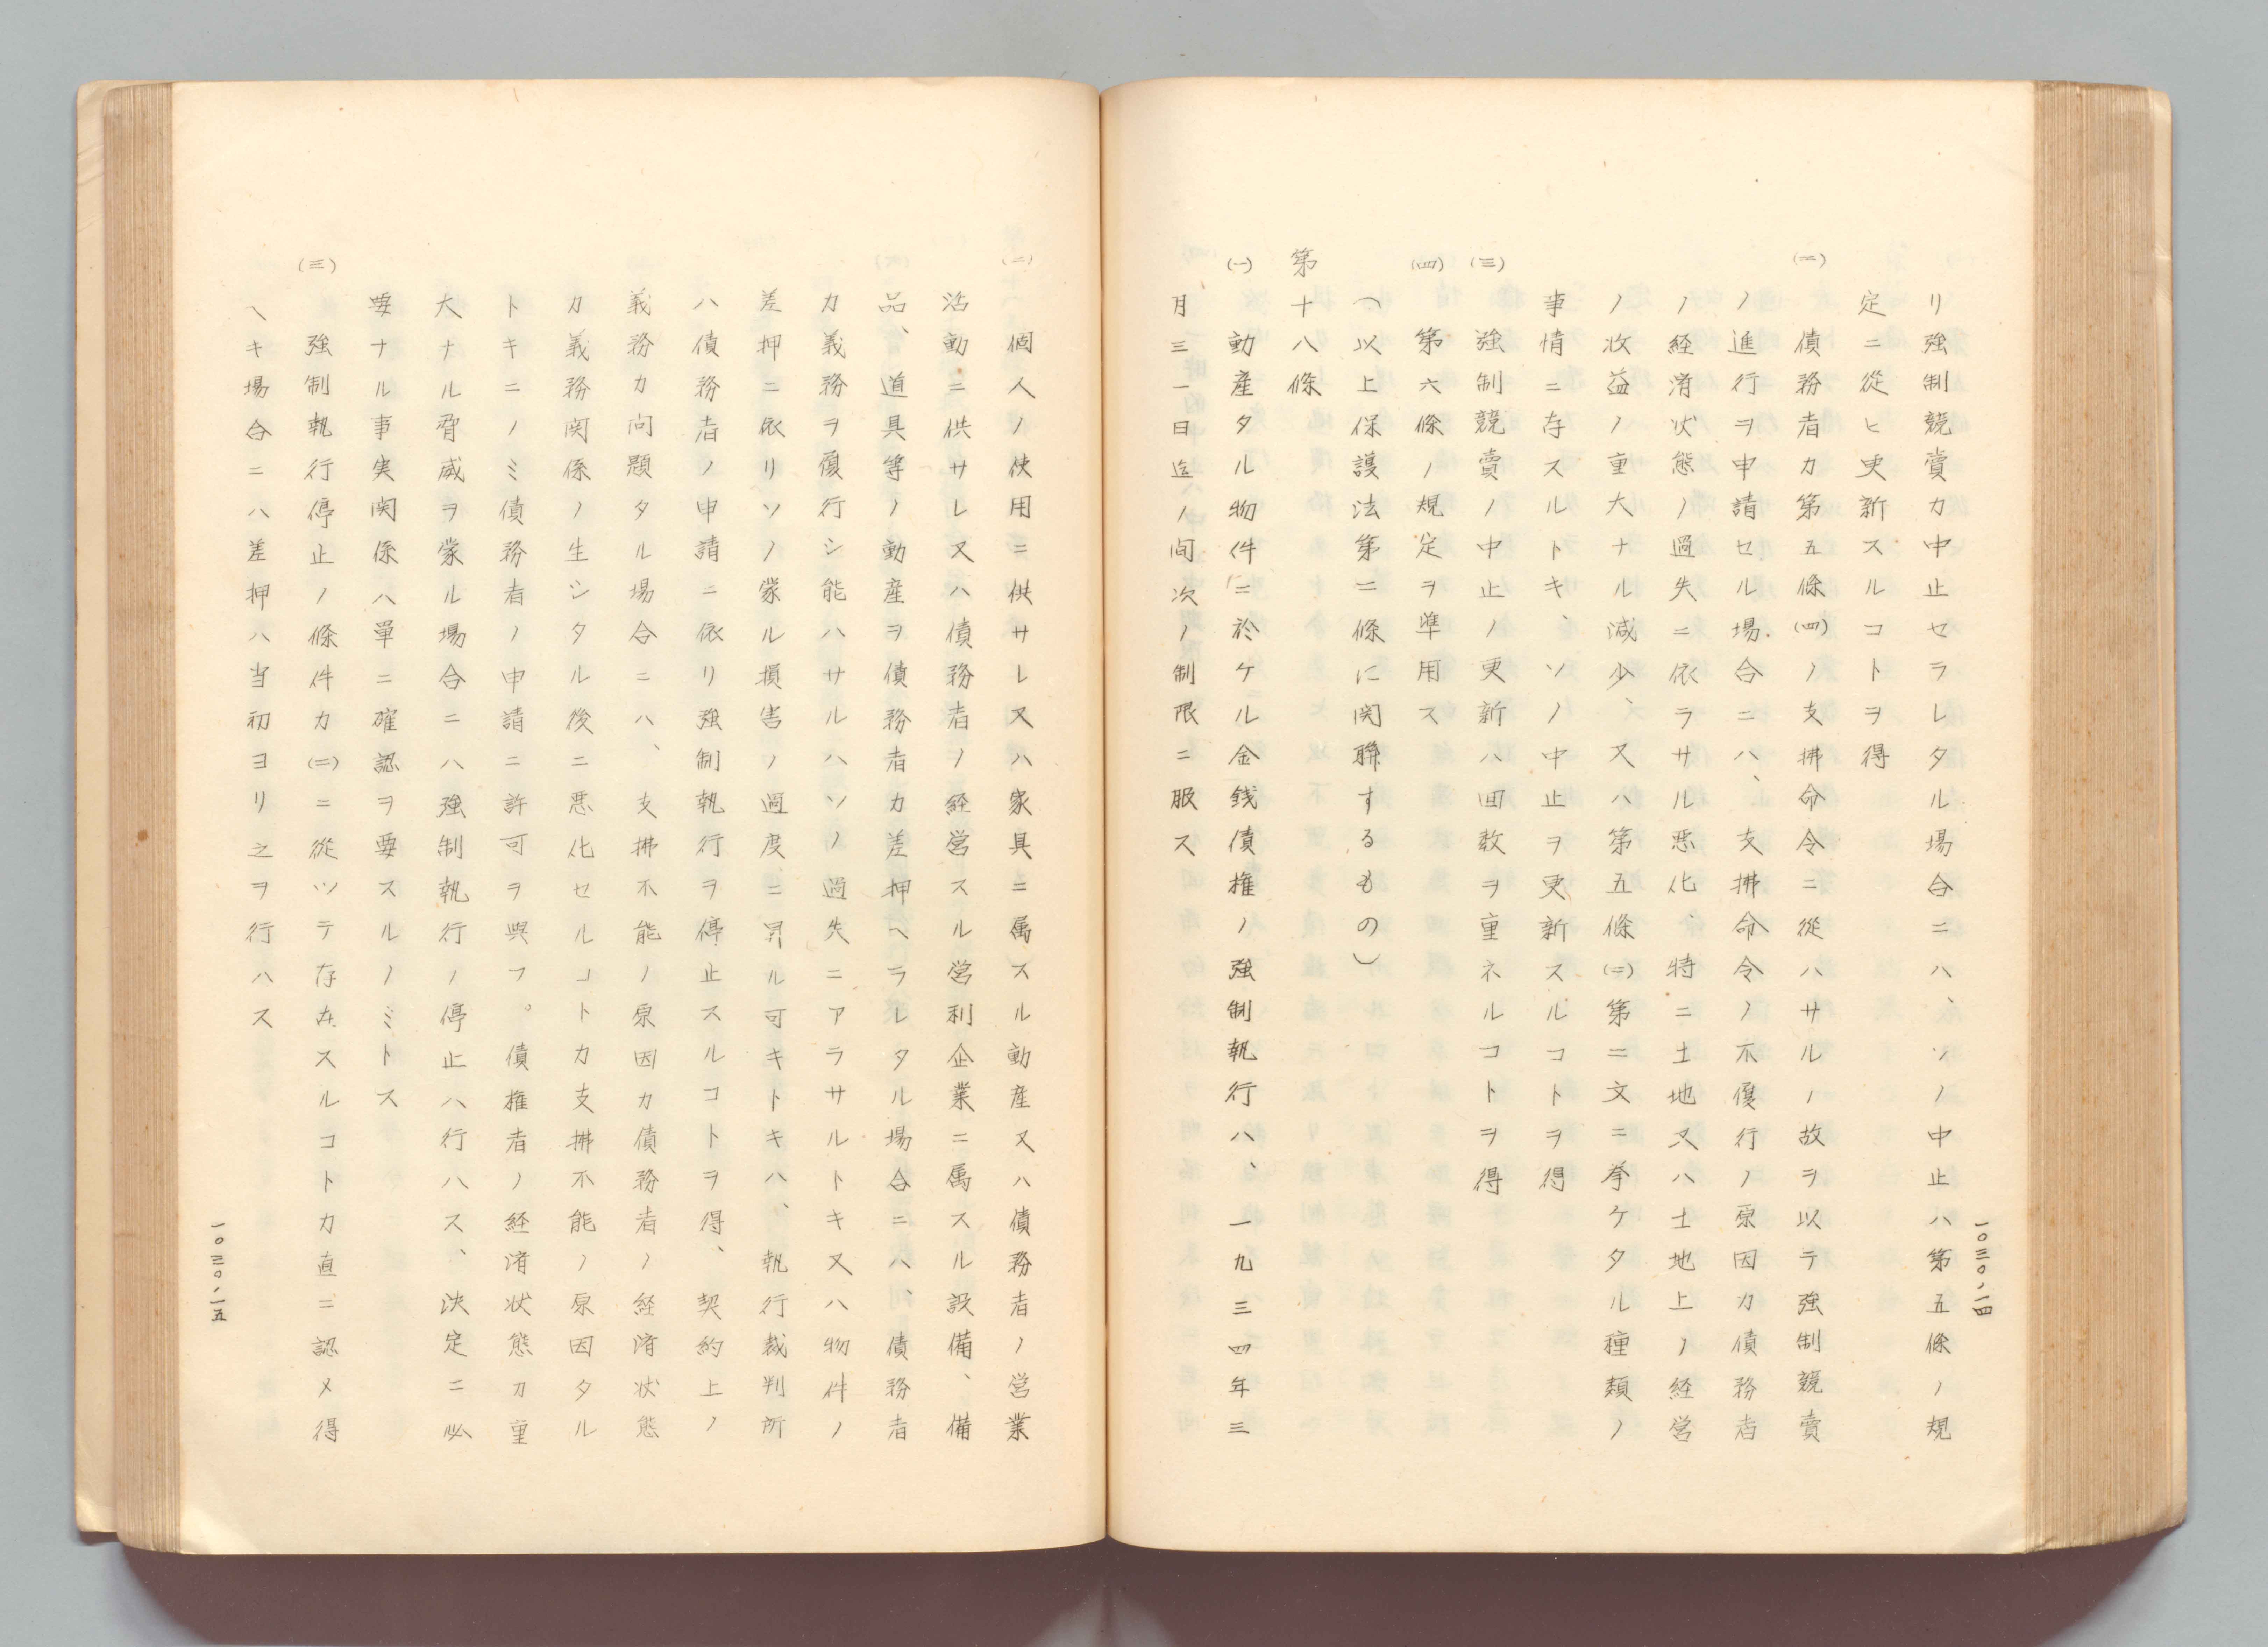 一〇三〇、一四
リ強制競賣カ中止セラレタル場合ニハ、ソノ中止ハ第五條ノ規
定ニ從ヒ更新スルコトヲ得
(二)
債務者カ第五條(四)ノ支拂命令ニ從ハサルノ故ヲ以テ強制競賣
ノ進行ヲ申請セル場合ニハ、支拂命令ノ不履行ノ原因カ債務者
ノ経済状態ノ過失ニ依ラサル悪化、特ニ土地又ハ土地上ノ経営
ノ收益ノ重大ナル減少、又ハ第五條(二)第二文ニ挙ケタル種類ノ
事情ニ存スルトキ、ソノ中止ヲ更新スルコトヲ得
(三)
強制競賣ノ中止ノ更新ハ回数ヲ重ネルコトヲ得
(四)
第六條ノ規定ヲ準用ス
(以上保護法第二條に関聯するもの)
第十八條
(一)
動産タル物件ニ於ケル金銭債権ノ強制執行ハ、一九三四年三
月三一日迄ノ間次ノ制限ニ服ス
(二)
個人ノ使用ニ供サレ又ハ家具ニ属スル動産又ハ債務者ノ営業
活動ニ供サレ又ハ債務者ノ経営スル営利企業ニ属スル設備、備
品、道具等ノ動産ヲ債務者カ差押ヘラレタル場合ニハ、債務者
カ義務ヲ履行シ能ハサルハソノ過失ニアラサルトキ又ハ物件ノ
差押ニ依リソノ蒙ル損害ノ過度ニ昇ル可キトキハ、執行裁判所
ハ債務者ノ申請ニ依リ強制執行ヲ停止スルコトヲ得、契約上ノ
義務カ問題タル場合ニハ、支拂不能ノ原因カ債務者ノ経済状態
カ義務関係ノ生シタル後ニ悪化セルコトカ支拂不能ノ原因タル
トキニノミ債務者ノ申請ニ許可ヲ與フ。債権者ノ経済状態カ重
大ナル脅威ヲ蒙ル場合ニハ強制執行ノ停止ハ行ハス、決定ニ必
要ナル事実関係ハ單ニ確認ヲ要スルノミトス
(三)
強制執行停止ノ條件カ(二)ニ從ツテ存在スルコトカ直ニ認メ得
ヘキ場合ニハ差押ハ当初ヨリ之ヲ行ハス
一〇三〇、一五